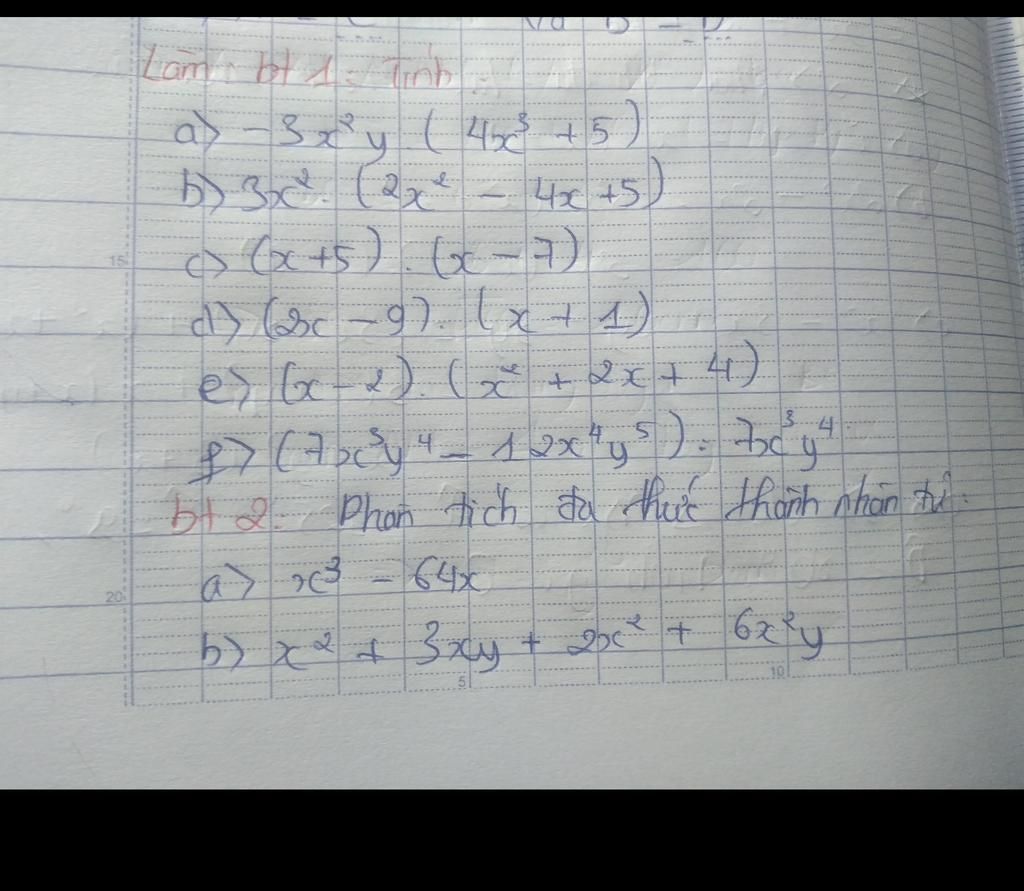 Làm bt 1: Tính:
a) -3x²y (4x³ + 5)
b) 3x². (2x² - 4x +5)
c) (x +5) . (x - 7)
d) (2x - 9). (x + 1)
e) (x - 2). (x² + 2x + 4)
f) (7x³y⁴ - 12x⁴y⁵) : 7x³y⁴
bt 2: Phân tích đa thức thành nhân tử:
a) x³ - 64x
20
b) x² + 3xy + 2x² + 6x²y
5 10